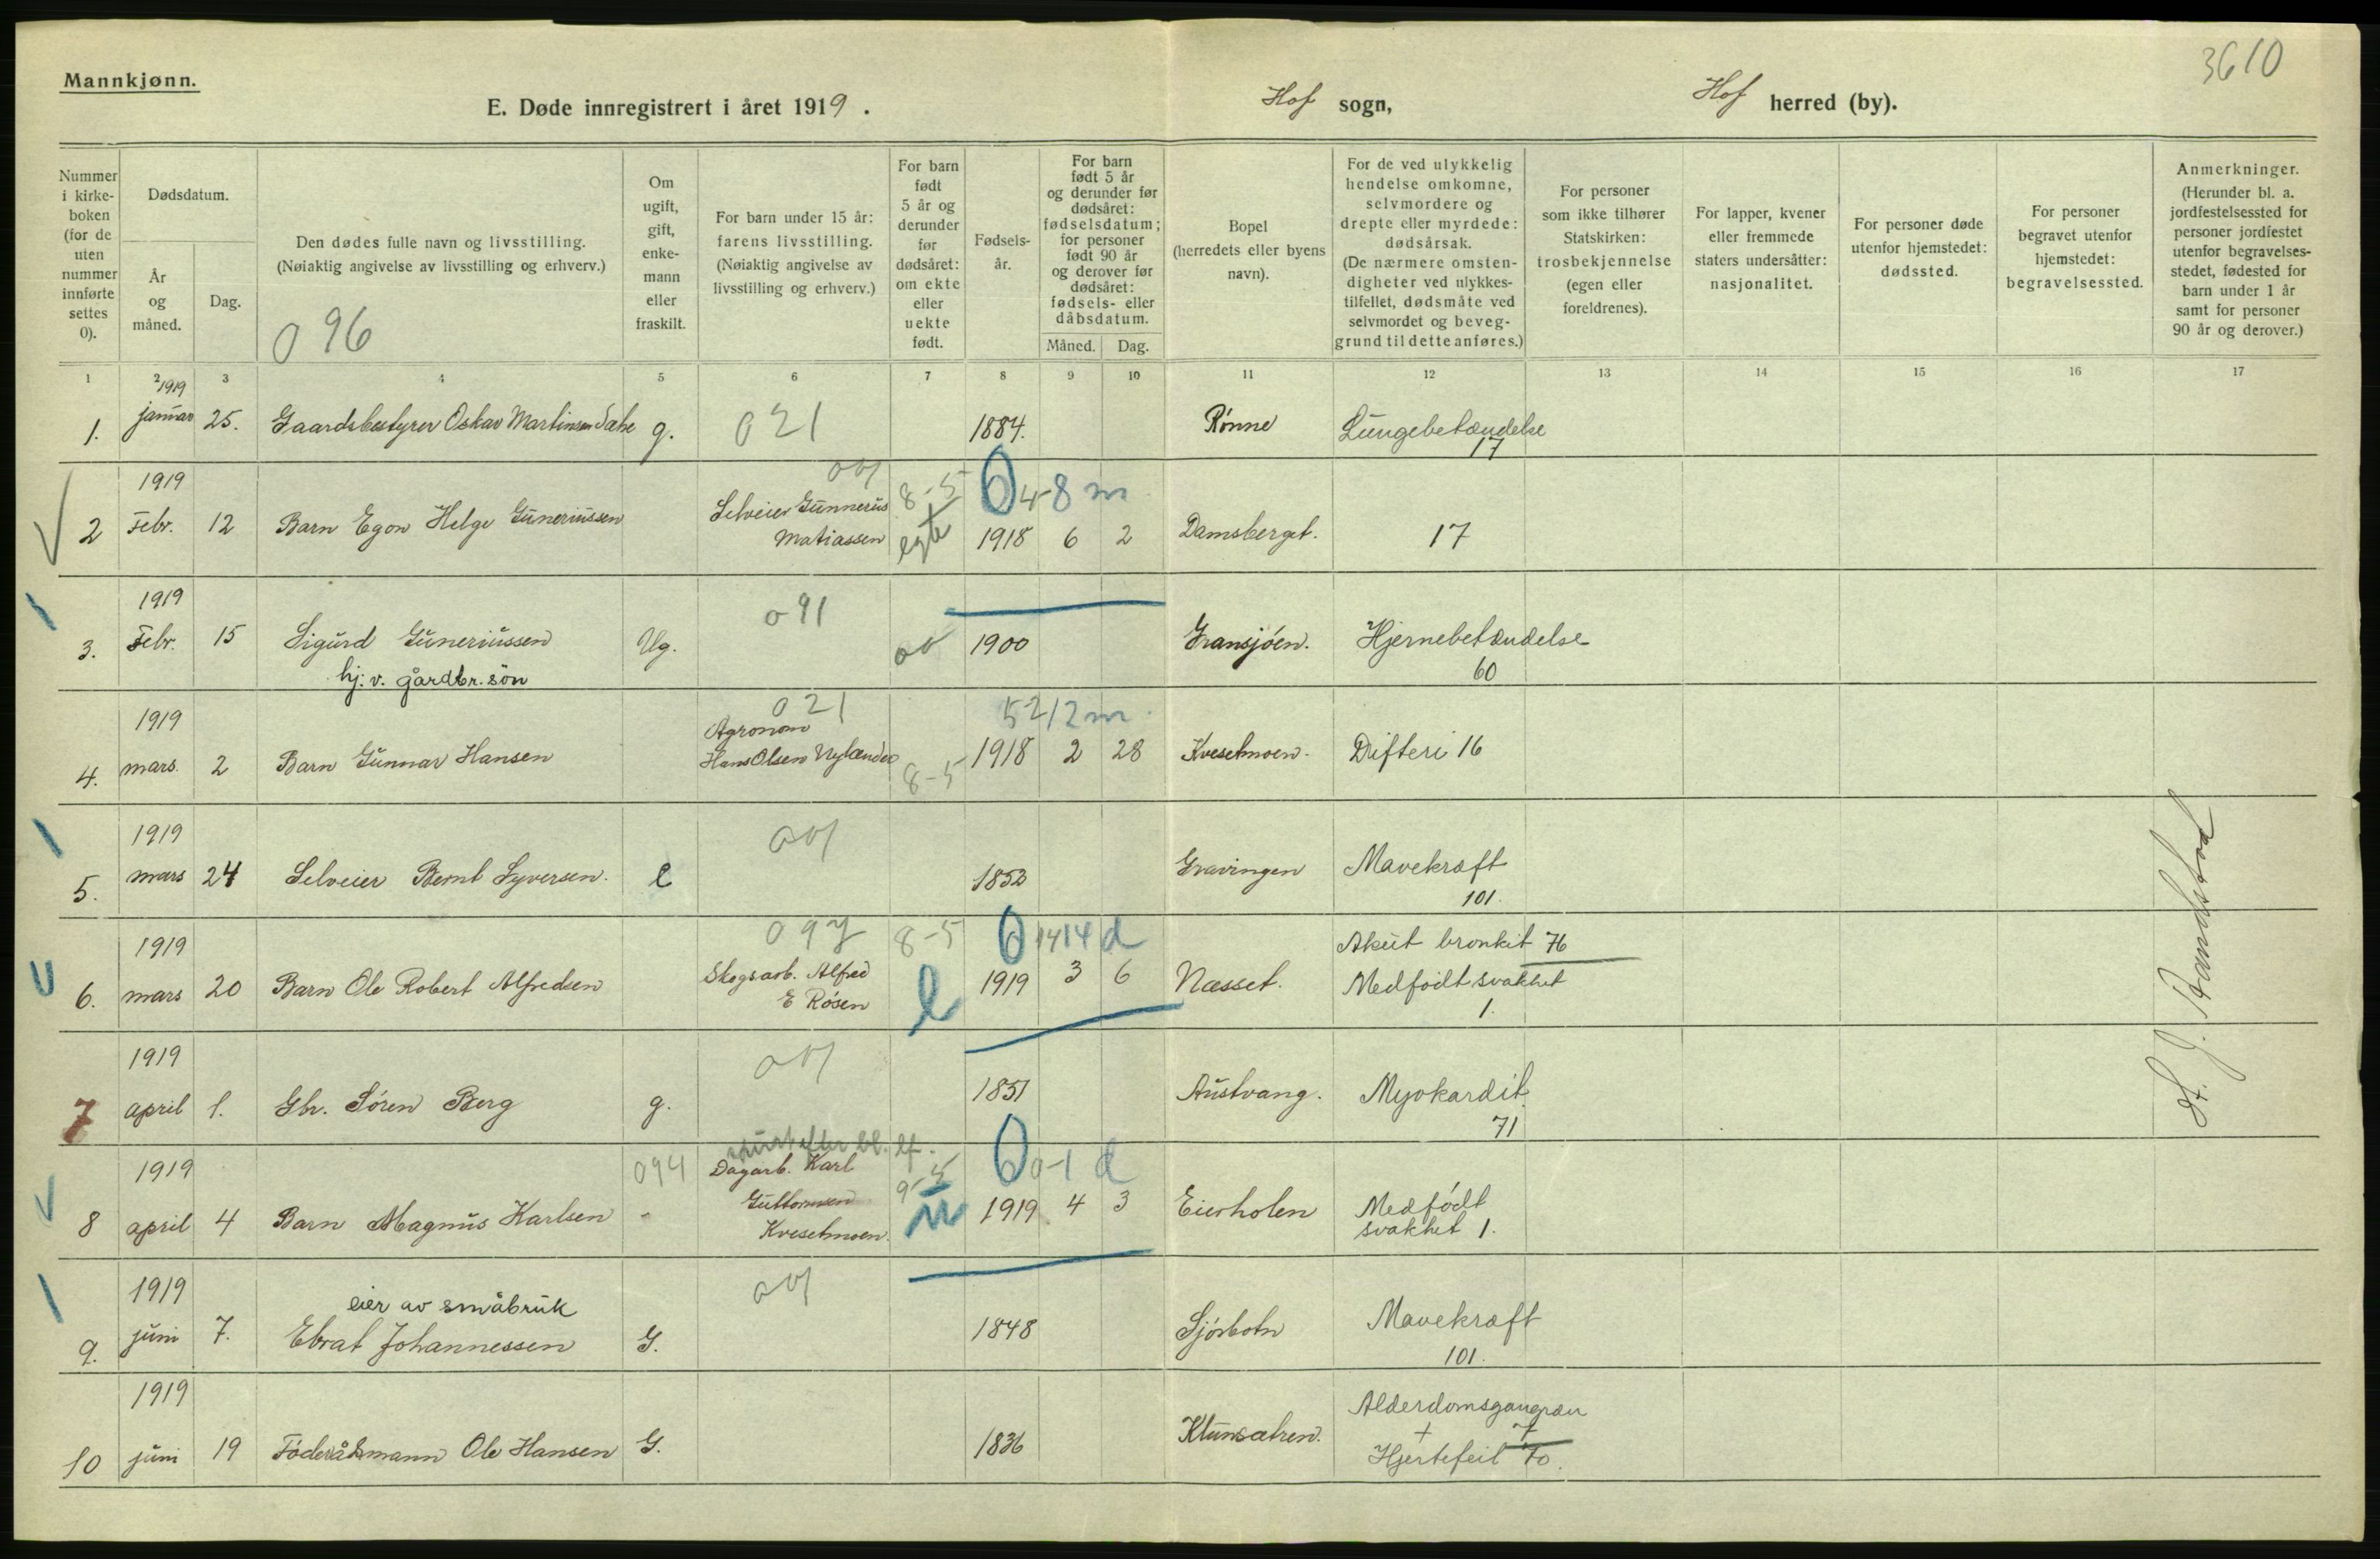 3610
Mannkjønn.
E. Døde innregistrert i året 1919. Hof sogn, Hof herred (by).
Nummer i kirke-boken (for de uten nummer innførte settes 0).
Dødsdatum.
År og måned.
Dag.
Den dødes fulle navn og livsstilling.
(Nøiaktig angivelse av livsstilling og erhverv.)
096
Om ugift, gift, enke-mann eller fraskilt.
For barn under 15 år: farens livsstilling.
(Nøiaktig angivelse av livsstilling og erhverv.)
For barn født 5 år og derunder før dødsåret: om ekte eller uekte født.
Fødsels-år.
For barn født 5 år og derunder før dødsåret: fødselsdatum; for personer født 90 år og derover før dødsåret: fødsels- eller dåbsdatum.
Måned. Dag.
Bopel (herredets eller byens navn).
For de ved ulykkelig hendelse omkomne, selvmordere og drepte eller myrdede: dødsårsak.
(De nærmere omsten-digheter ved ulykkes-tilfellet, dødsmåte ved selvmordet og beveg-grund til dette anføres.)
For personer som ikke tilhører Statskirken: trosbekjennelse (egen eller foreldrenes).
For lapper, kvener eller fremmede staters undersåtter: nasjonalitet.
For personer døde utenfor hjemstedet: dødssted.
For personer begravet utenfor hjemstedet: begravelsessted.
Anmerkninger.
(Herunder bl. a. jordfestelsessted for personer jordfestet utenfor begravelses-stedet, fødested for barn under 1 år samt for personer 90 år og derover.)
1 2 3 4 5 6 7 8 9 10 11 12 13 14 15 16 17
1919
1. januar 25. Gaardsbestyrer Oskar Martinsen g. 021 1884. Rønne Lungebetændelse
17
1919 8-5 4-8 m
2 Febr. 12 Barn Egon Helge Guneriussen Selveier Gunnerus Matiassen egte 1918 6 2 Damsberget. 17
1919 091
3. Febr. 15 Sigurd Guneriussen Ug. 1900 Gransjøen. Hjernebetændelse
hj. v. gårdbr. søn 60
1919 021 5212 m
4. mars. 2 Barn Gunnar Hansen Agronom Hans Olsen Nylænder 8-5 1918 2 28 Kvesetmoen. Difteri 16
1919
5. mars 24 Selveier Bernt Syversen. e 1852 Gravingen Mavekræft
101.
1919 097 8-5 1414 d Akut bronkit 76
6. mars 20 Barn Ole Robert Alfredsen Skogsarb. Alfred E Røsen e 1919 3 6 Næsset. Medfødt svakhet
1.
1919
7 april 1. Gbr. Søren Berg g. 1851 Austvang. Myokardit.
71
1919 094 9-5 0-1 d
8 april 4 Barn Magnus Karlsen - Dagarb. Karl Guttormsen Kvesetmoen. u 1919 4 3 Eierholen Medfødt svakhet 1.
1919 eier av småbruk
9. juni 7. Ebrat Johannessen G. 1848 Sjøbotn Mavekræft
101.
1919 Alderdomsgangræn
10 juni 19 Føderådsmann Ole Hansen G. 1836 Klunsætren. + 7
Hjertefeil 70.